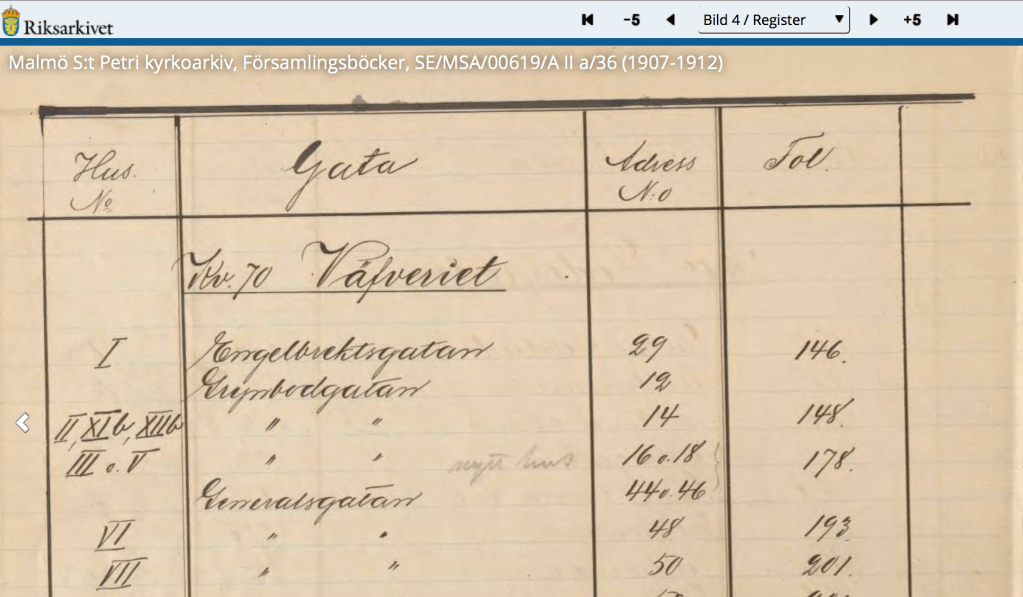 Riksarkivet -5 Bild 4 / Register +5
Malmö S:t Petri kyrkoarkiv, Församlingsböcker, SE/MSA/00619/A II a/36 (1907-1912)
Hus. Gata Adress Fol.
No N:o
Kv. 70 Väfveriet
I Engelbrektsgatan 29 146.
Grynbodgatan 12
II, XI b, XIII b " " 14 148.
III o. V " " nytt hus 16 o. 18 178.
Generalsgatan 44 o. 46
VI " " 48 193
VII " " 50 201.